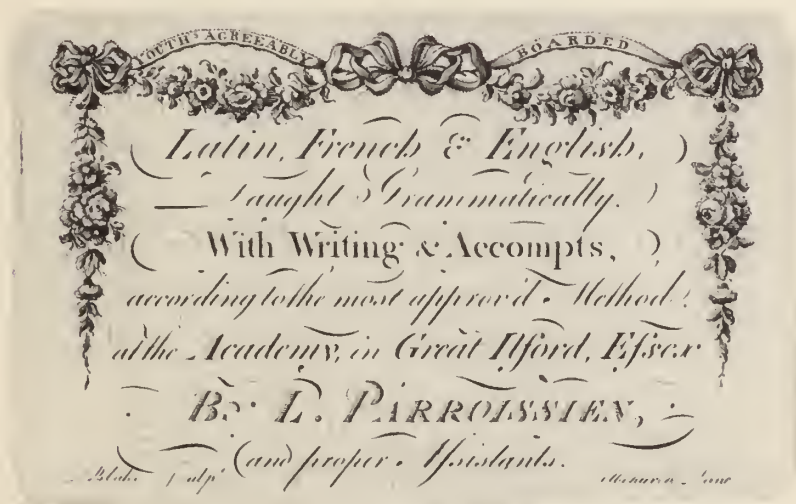 YOUTH AGREEABLY BOARDED
Latin, French & English,
Taught Grammatically.
With Writing & Accompts,
according to the most approv'd Method
at the Academy, in Great Ilford, Essex
By L. PARROISSIEN,
and proper Assistants.
Blake sculpt Lane